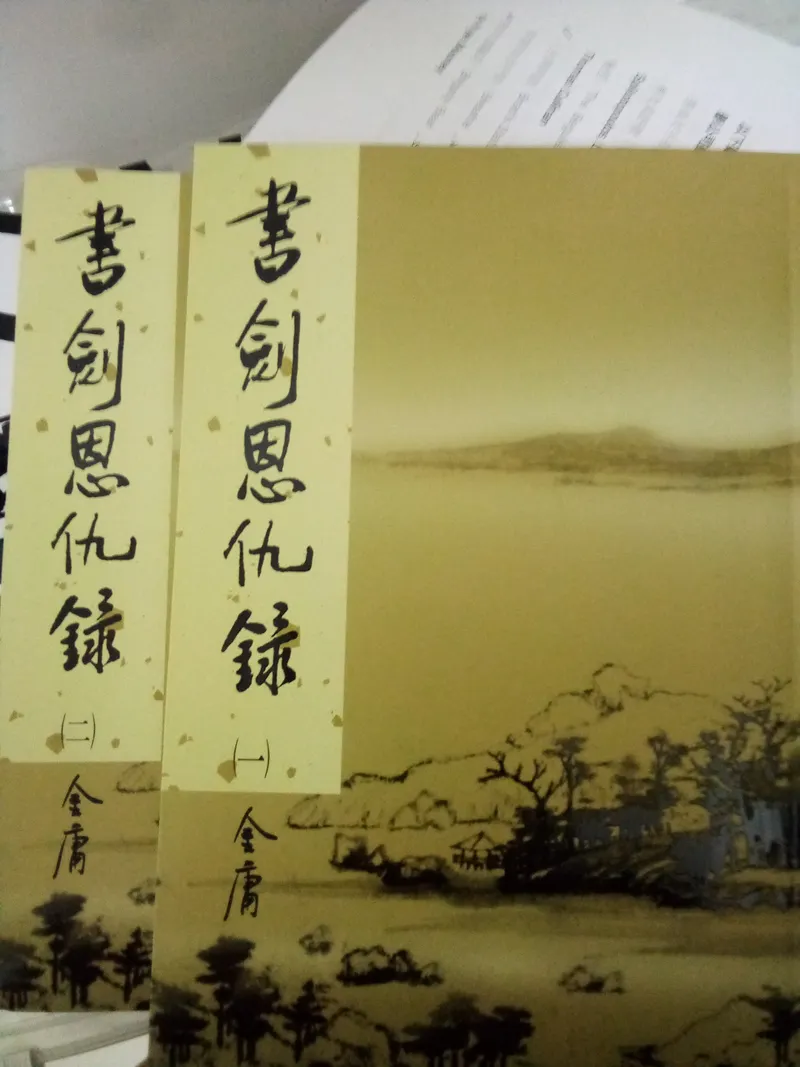 書劍恩仇錄
(二)
金庸
書劍恩仇錄
(一)
金庸